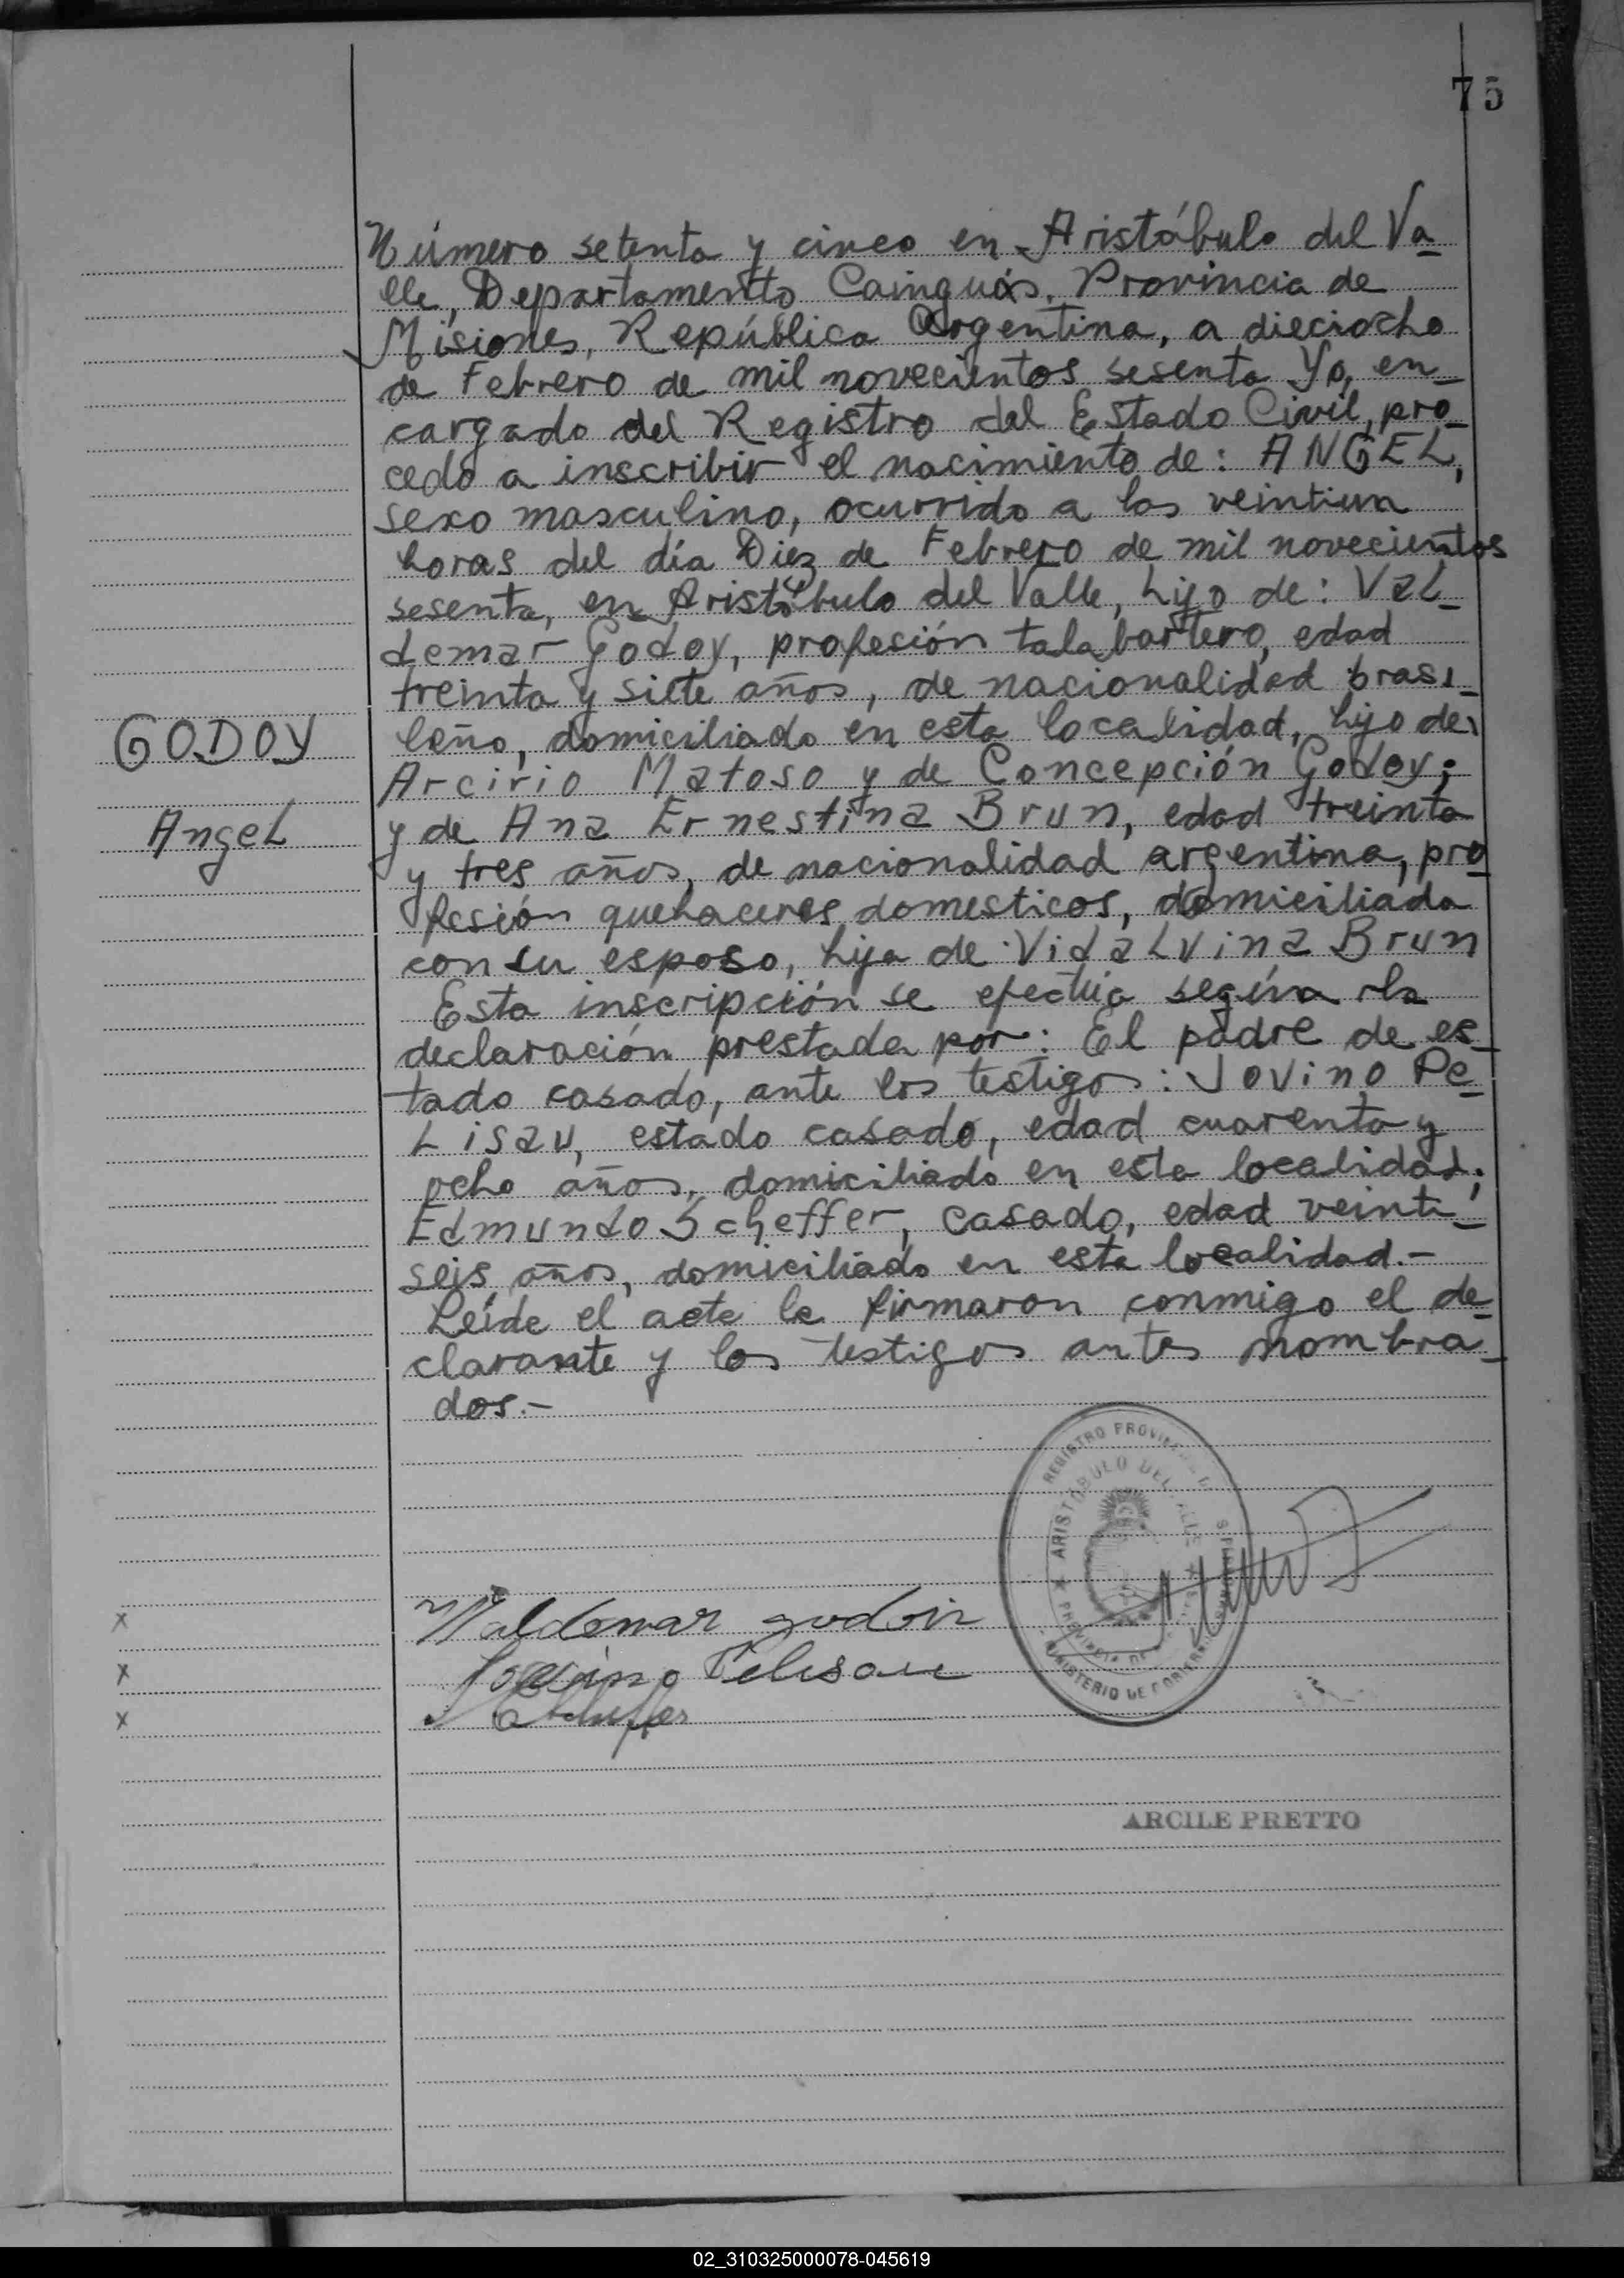 75
Número setenta y cinco en Aristóbulo del Va-
lle, Departamento Cainguás, Provincia de
Misiones, República Argentina, a dieciocho
de Febrero de mil novecientos sesenta Yo, en-
cargado del Registro del Estado Civil, pro-
cedo a inscribir el nacimiento de: ANGEL,
sexo masculino, ocurrido a las veintiun
horas del día Diez de Febrero de mil novecientos
sesenta, en Aristóbulo del Valle, hijo de: Val-
demar Godoy, profesión talabartero, edad
treinta y siete años, de nacionalidad brasi-
GODOY
leño, domiciliado en esta localidad, hijo de:
Arcirio Matoso y de Concepción Godoy;
Angel
y de Ana Ernestina Brun, edad treinta
y tres años, de nacionalidad argentina, pro-
fesión quehaceres domesticos, domiciliada
con su esposo, hija de: Vidalvina Brun
Esta inscripción se efectúa según la
declaración prestada por: El padre de es-
tado casado, ante los testigos: Jovino Pe-
lisau, estado casado, edad cuarenta y
ocho años, domiciliado en esta localidad;
Edmundo Scheffer, casado, edad veinti-
seis años, domiciliado en esta localidad.-
Leída el acta la firmaron conmigo el de-
clarante y los testigos antes nombra-
dos.-
REGISTRO PROVINCIAL
ARISTÓBULO DEL VALLE
PROVINCIA DE
MINISTERIO DE GOBIERNO
x Valdemar godoin
x Jovino Pelisau
x EScheffer
ARCILE PRETTO
02_310325000078-045619